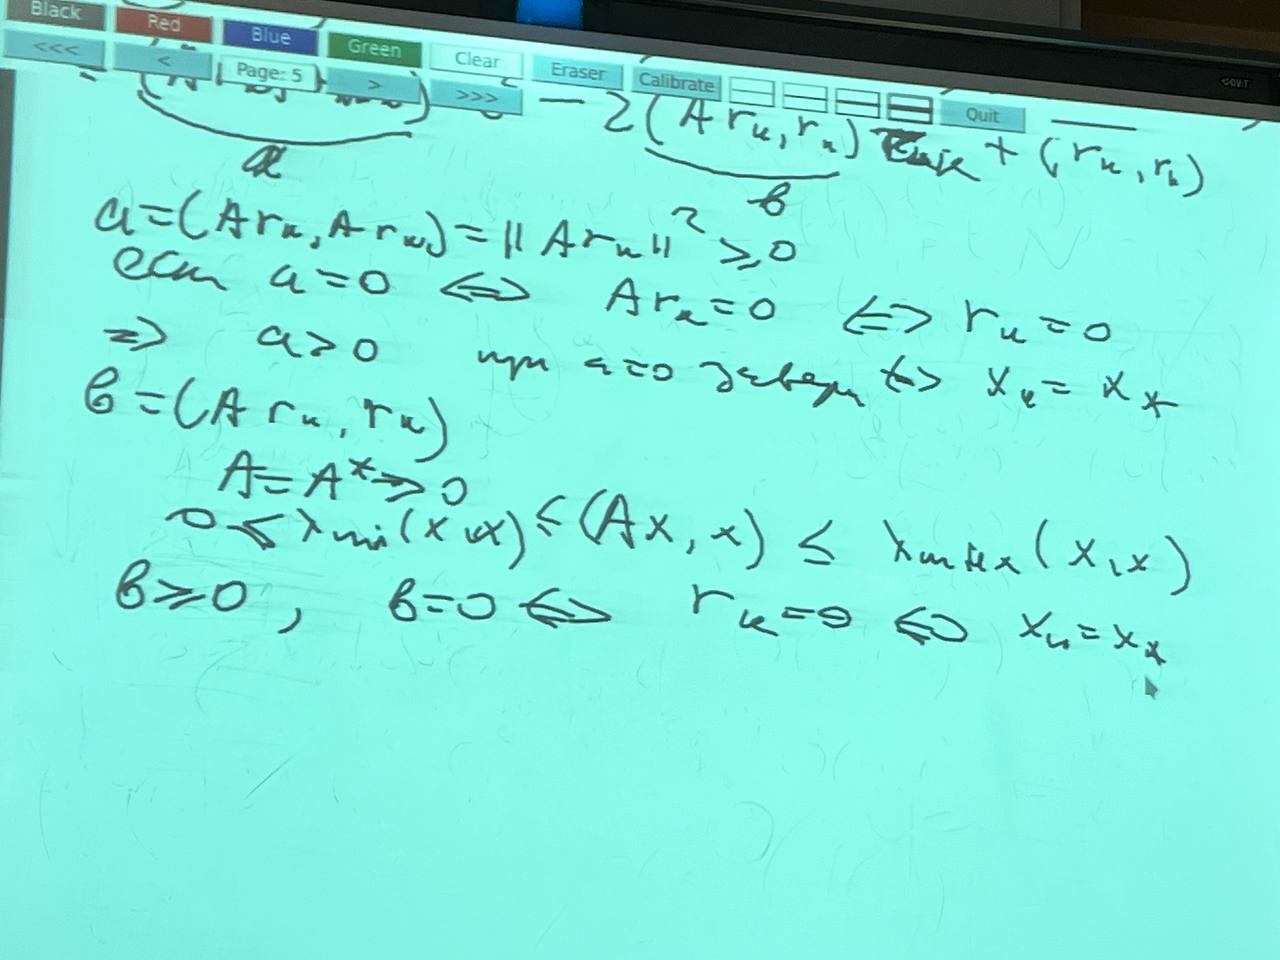 Black Red Blue Green Clear Eraser Calibrate Quit
<<< < Page: 5 > >>>
− 2(A rₖ, rₖ) + (rₖ, rₖ)
a в
a = (A rₖ, A rₖ) = ‖A rₖ‖² ⩾ 0
если a = 0 ⇔ A rₖ = 0 ⇔ rₖ = 0
⇒ a > 0 при a = 0 ⇔ xₖ = x_*
в = (A rₖ, rₖ)
A = A* > 0
0 < λ_min(x, x) ≤ (Ax, x) ≤ λ_max(x, x)
в ⩾ 0, в = 0 ⇔ rₖ = 0 ⇔ xₖ = x_*